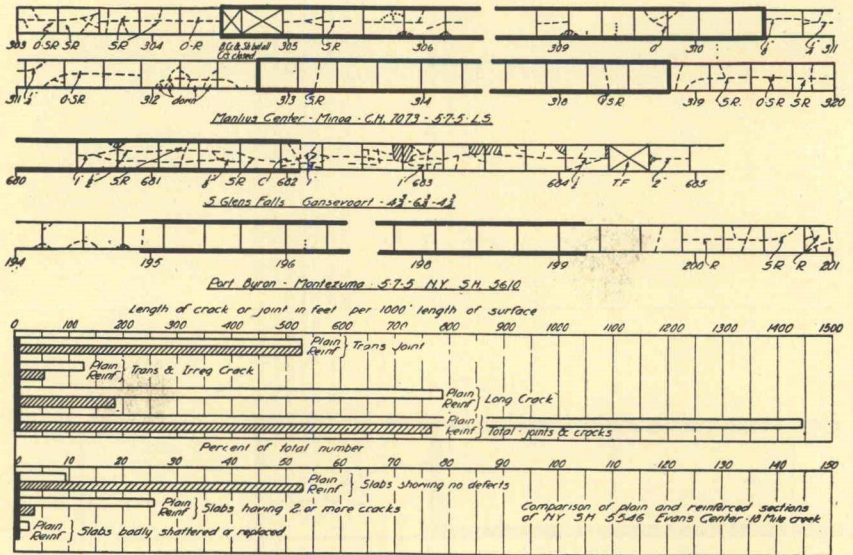 303 O-SR SR SR 304 O-R B.Cr. & Sh. bd. all Co closed 305 SR 306 309 O 310 311
311 O-SR 312 down 313 SR 314 318 SR 319 SR O-SR SR 320
Manlius Center - Minoa - C.H. 7073 - 5-7-5 L.S.
680 SR 681 SR C 682 1' 1' 683 684 T.F 2' 685
S Glens Falls Gansevoort - 4¾-6¾-4¾
194 195 196 198 199 200 R SR R 201
Port Byron - Montezuma 5-7-5 N.Y. S.H. 5610
Length of crack or joint in feet per 1000' length of surface
0 100 200 300 400 500 600 700 800 900 1000 1100 1200 1300 1400 1500
Plain
Reinf } Trans Joint
Plain
Reinf } Trans & Irreg Crack
Plain
Reinf } Long Crack
Plain
Reinf } Total - joints & cracks
Percent of total number
0 10 20 30 40 50 60 70 80 90 100 110 120 130 140 150
Plain
Reinf } Slabs showing no defects
Plain
Reinf } Slabs having 2 or more cracks
Plain
Reinf } Slabs badly shattered or replaced
Comparison of plain and reinforced sections
of NY SH 5546 Evans Center - 18 Mile creek